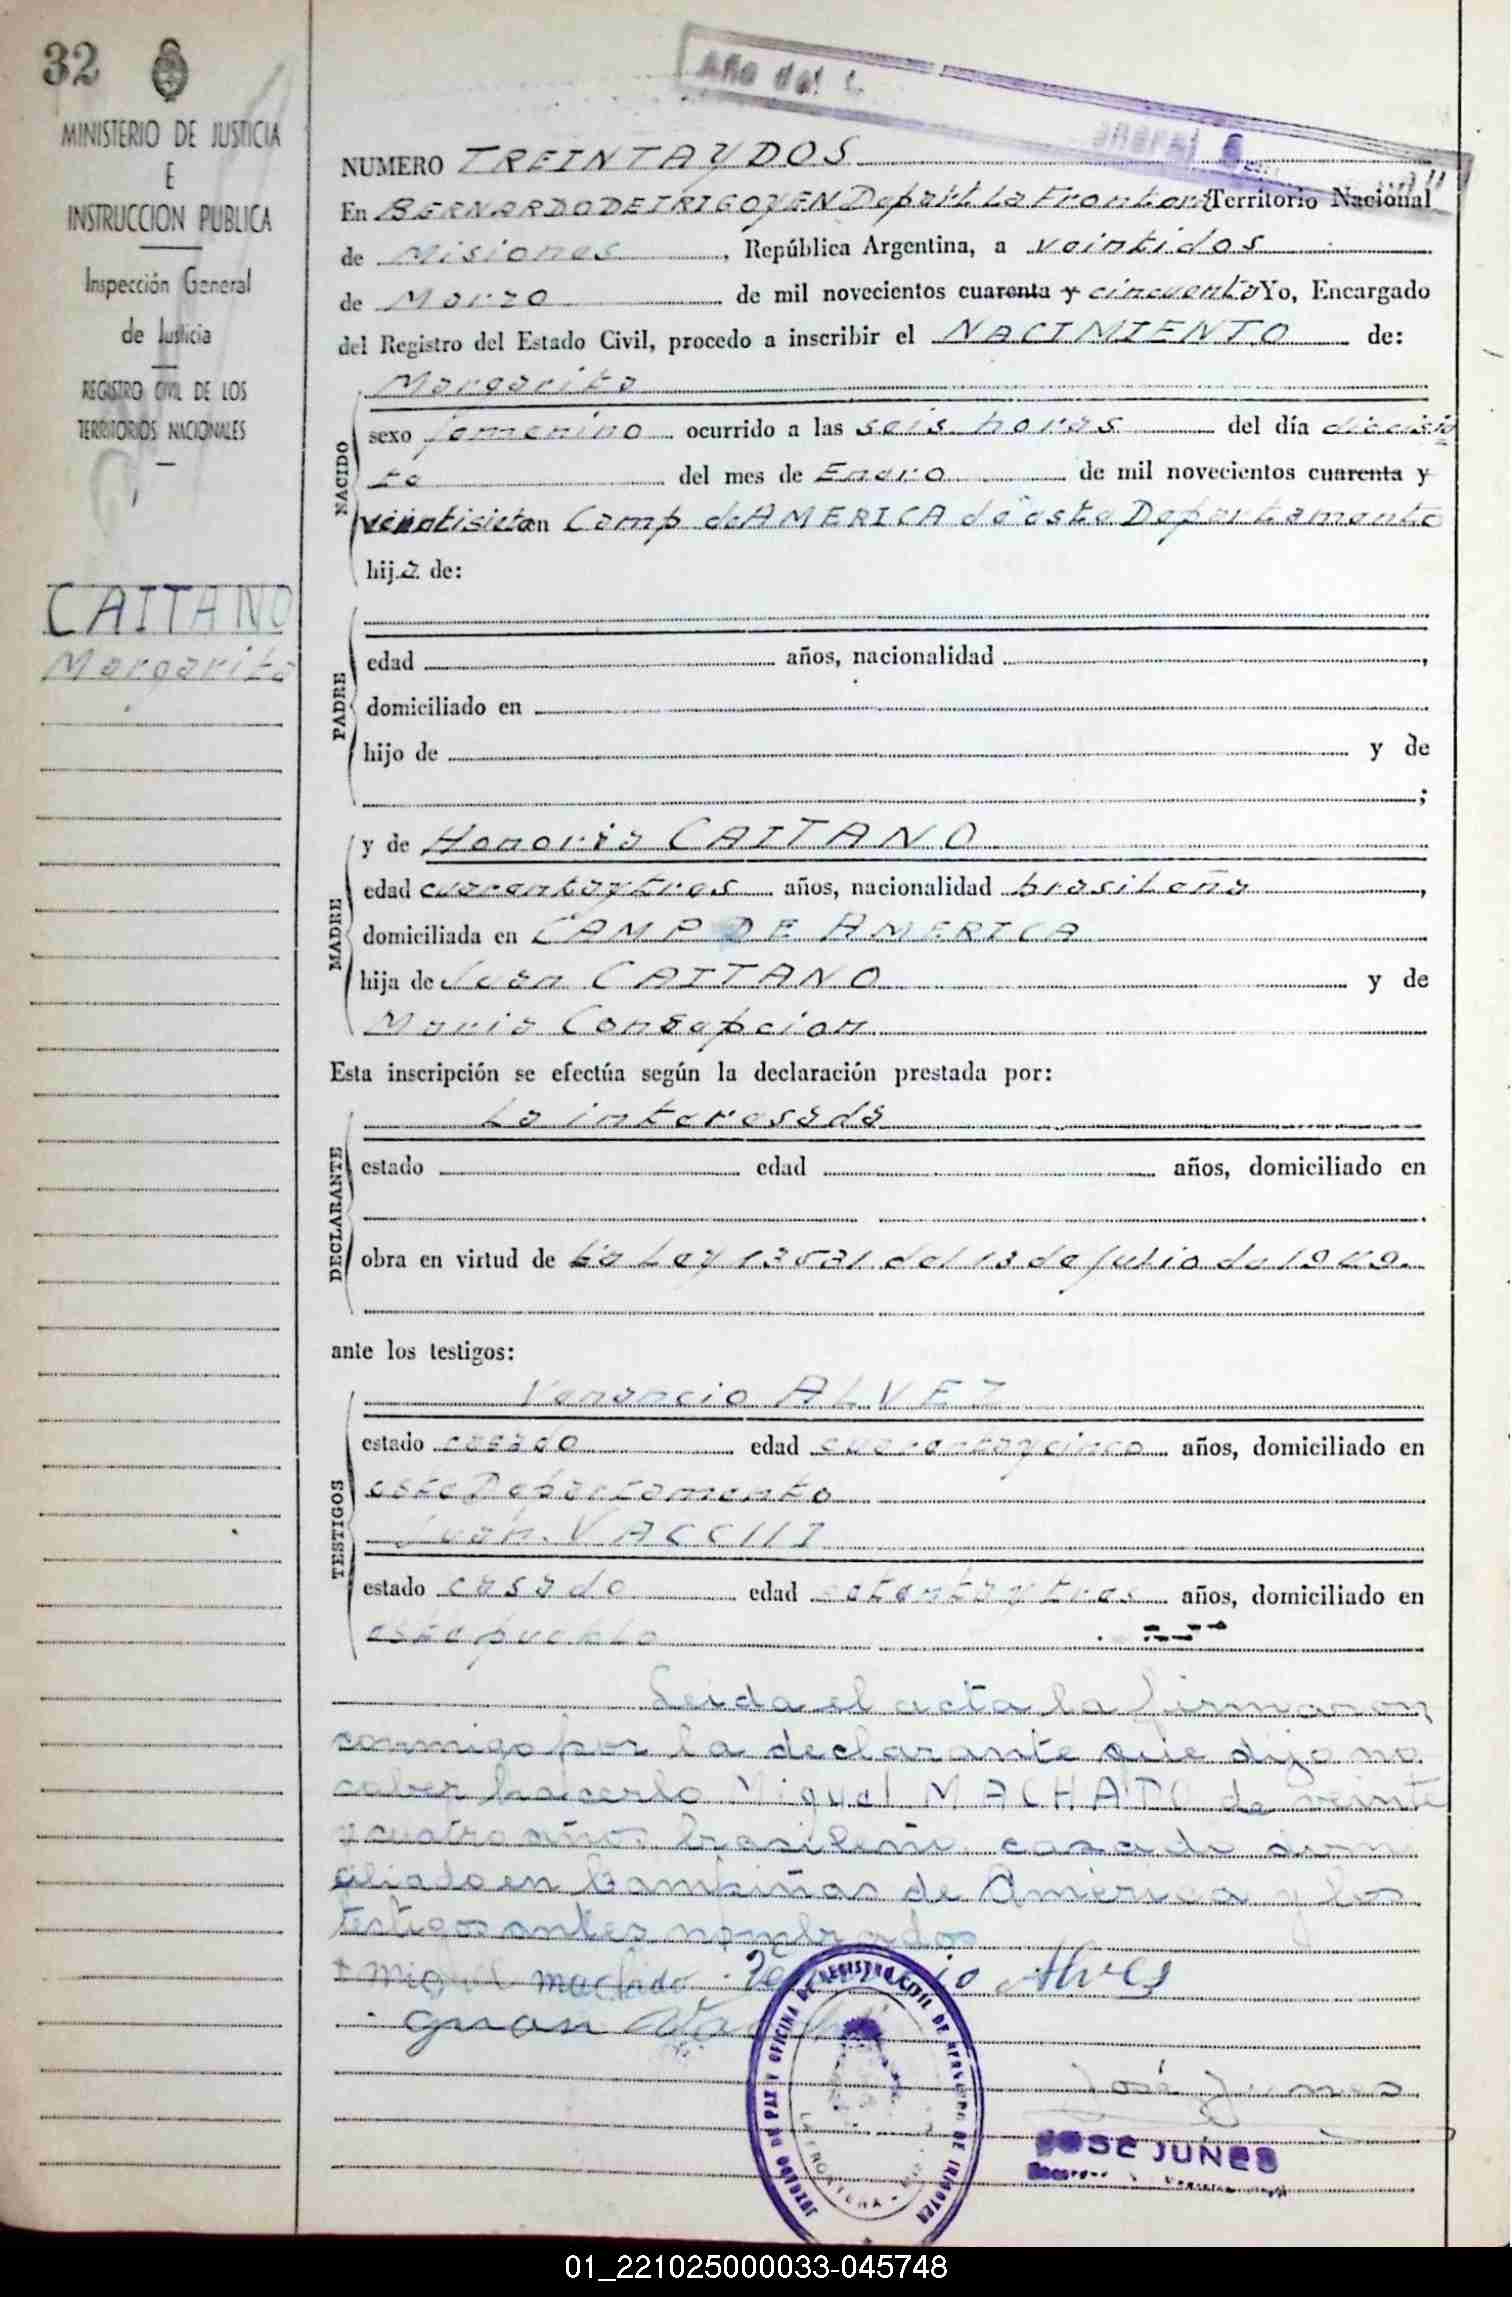 32
MINISTERIO DE JUSTICIA
E
INSTRUCCION PUBLICA
Inspección General
de Justicia
REGISTRO CIVIL DE LOS
TERRITORIOS NACIONALES
CAITANO
Margarita
Año del L
General
NUMERO TREINTA Y DOS
En BERNARDO DE IRIGOYEN Depart La Frontera Territorio Nacional
de Misiones, República Argentina, a veintidos
de Marzo de mil novecientos cuarenta y cincuenta Yo, Encargado
del Registro del Estado Civil, procedo a inscribir el NACIMIENTO de:
Margarita
NACIDO
sexo femenino ocurrido a las seis horas del día diecisie
te del mes de Enero de mil novecientos cuarenta y
veintisiete en Camp de AMERICA de este Departamento
hija de:
PADRE
edad años, nacionalidad ,
domiciliado en
hijo de y de
;
MADRE
y de Honoria CAITANO
edad cuarenta y tres años, nacionalidad brasileña,
domiciliada en CAMP DE AMERICA
hija de Juan CAITANO y de
Maria Consepcion
Esta inscripción se efectúa según la declaración prestada por:
DECLARANTE
La interesada
estado edad años, domiciliado en
obra en virtud de la Ley 13531 del 13 de Julio de 1949.
ante los testigos:
TESTIGOS
Venancio ALVEZ
estado casado edad cuarenta y cinco años, domiciliado en
este Departamento
Juan
estado casado edad setenta y tres años, domiciliado en
este pueblo
Leida el acta la firmaron
conmigo por la declarante que dijo no
saber hacerlo Miguel MACHADO de veinte
y cuatro años brasileño casado domi
ciliado en Campiñas de America y los
testigos antes nombrados
Miguel machado Alves
Juan
José Junes
JUZGADO DE PAZ Y OFICINA DE REGISTRO CIVIL DE BERNARDO DE IRIGOYEN
LA FRONTERA
JOSE JUNES
01_221025000033-045748